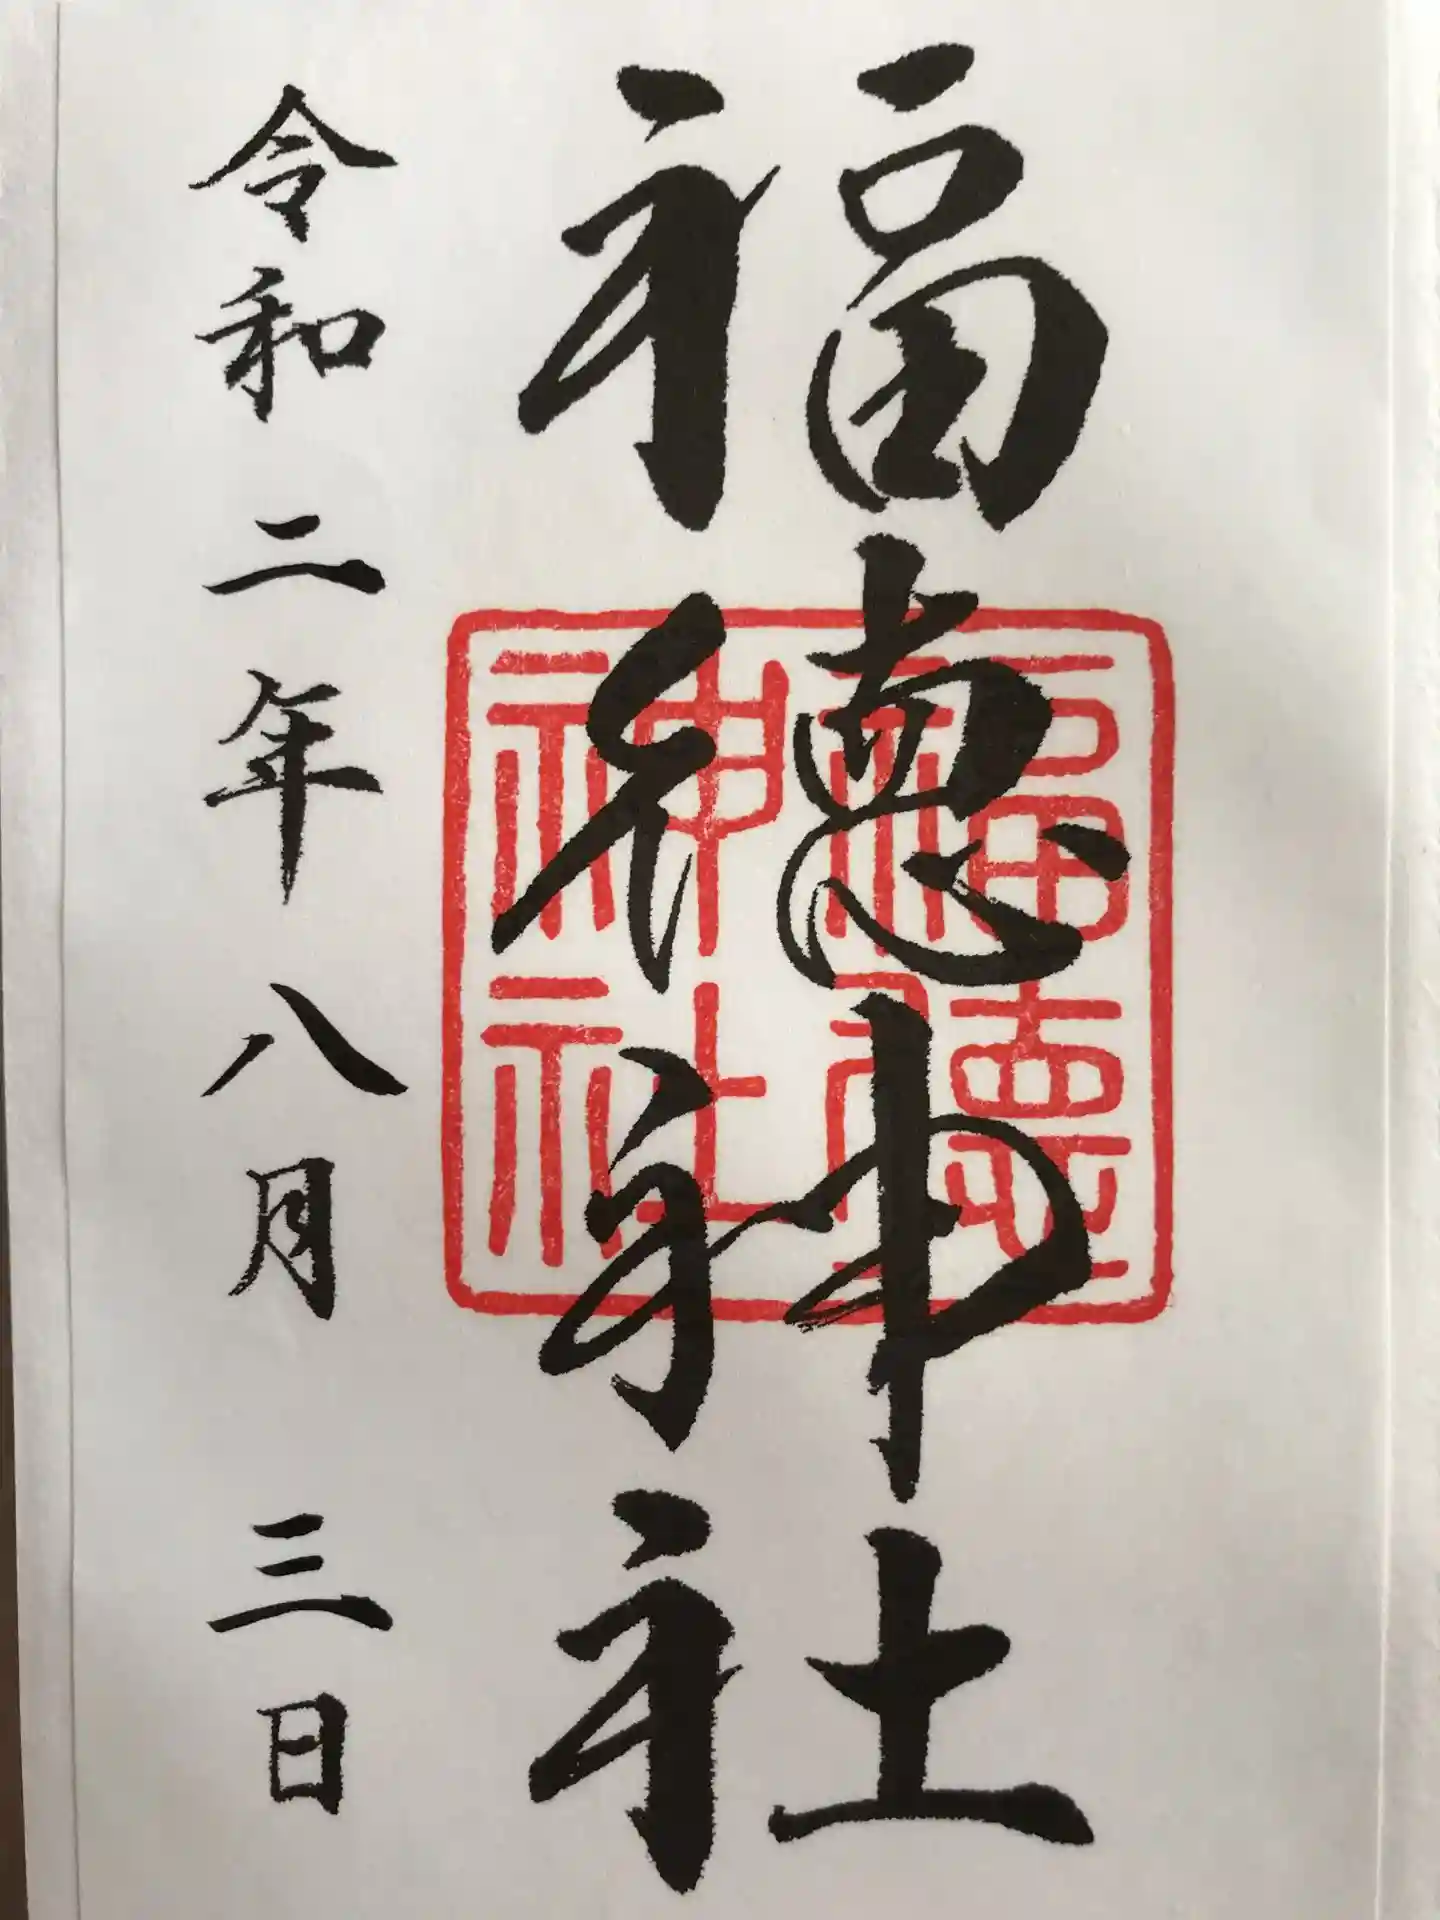 福徳神社
福徳
神社
令和二年八月三日